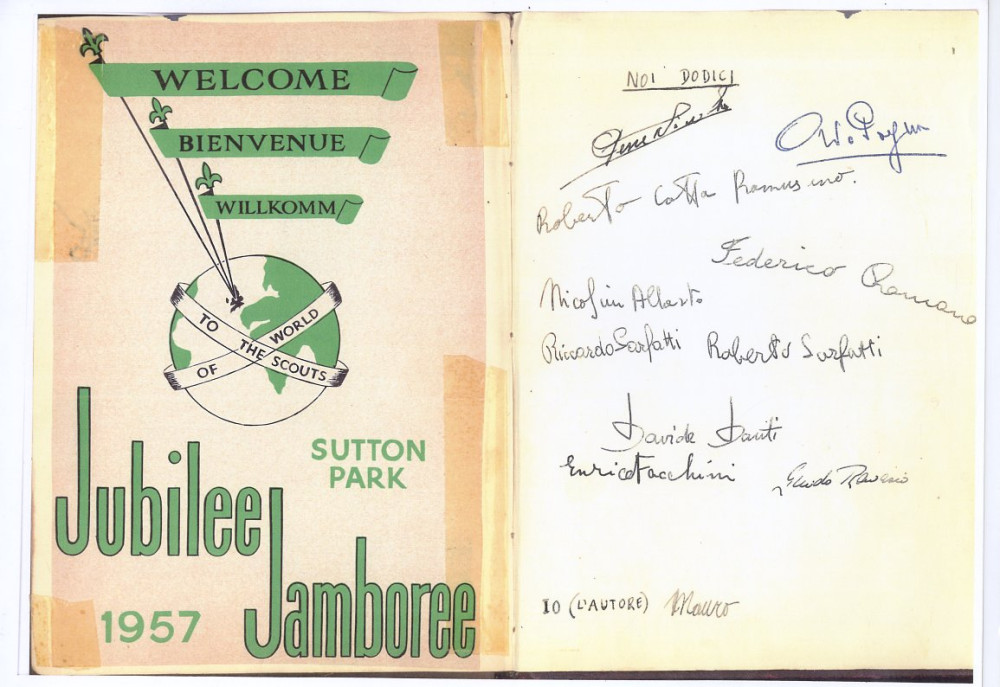 WELCOME
BIENVENUE
WILLKOMM
TO THE SCOUTS
OF WORLD
SUTTON
PARK
Jubilee
Jamboree
1957
NOI DODICI
Roberto Cotta Ramusino.
Federico Romano
Nicolini Alberto
Riccardo Sarfatti Roberto Sarfatti
Davide Danti
Enrico Facchini
Guido Ravasio
IO (L'AUTORE) Mauro